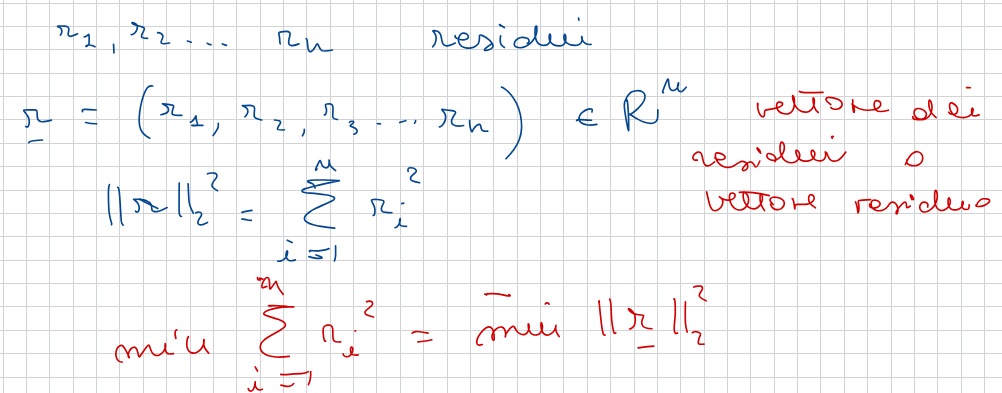 r₁, r₂ ... rₙ residui
r = (r₁, r₂, r₃ ... rₙ) ∈ ℝⁿ vettore dei
residui o
vettore residuo
||r||₂² = ∑ᵢ₌₁ⁿ rᵢ²
min ∑ᵢ₌₁ⁿ rᵢ² = min ||r||₂²